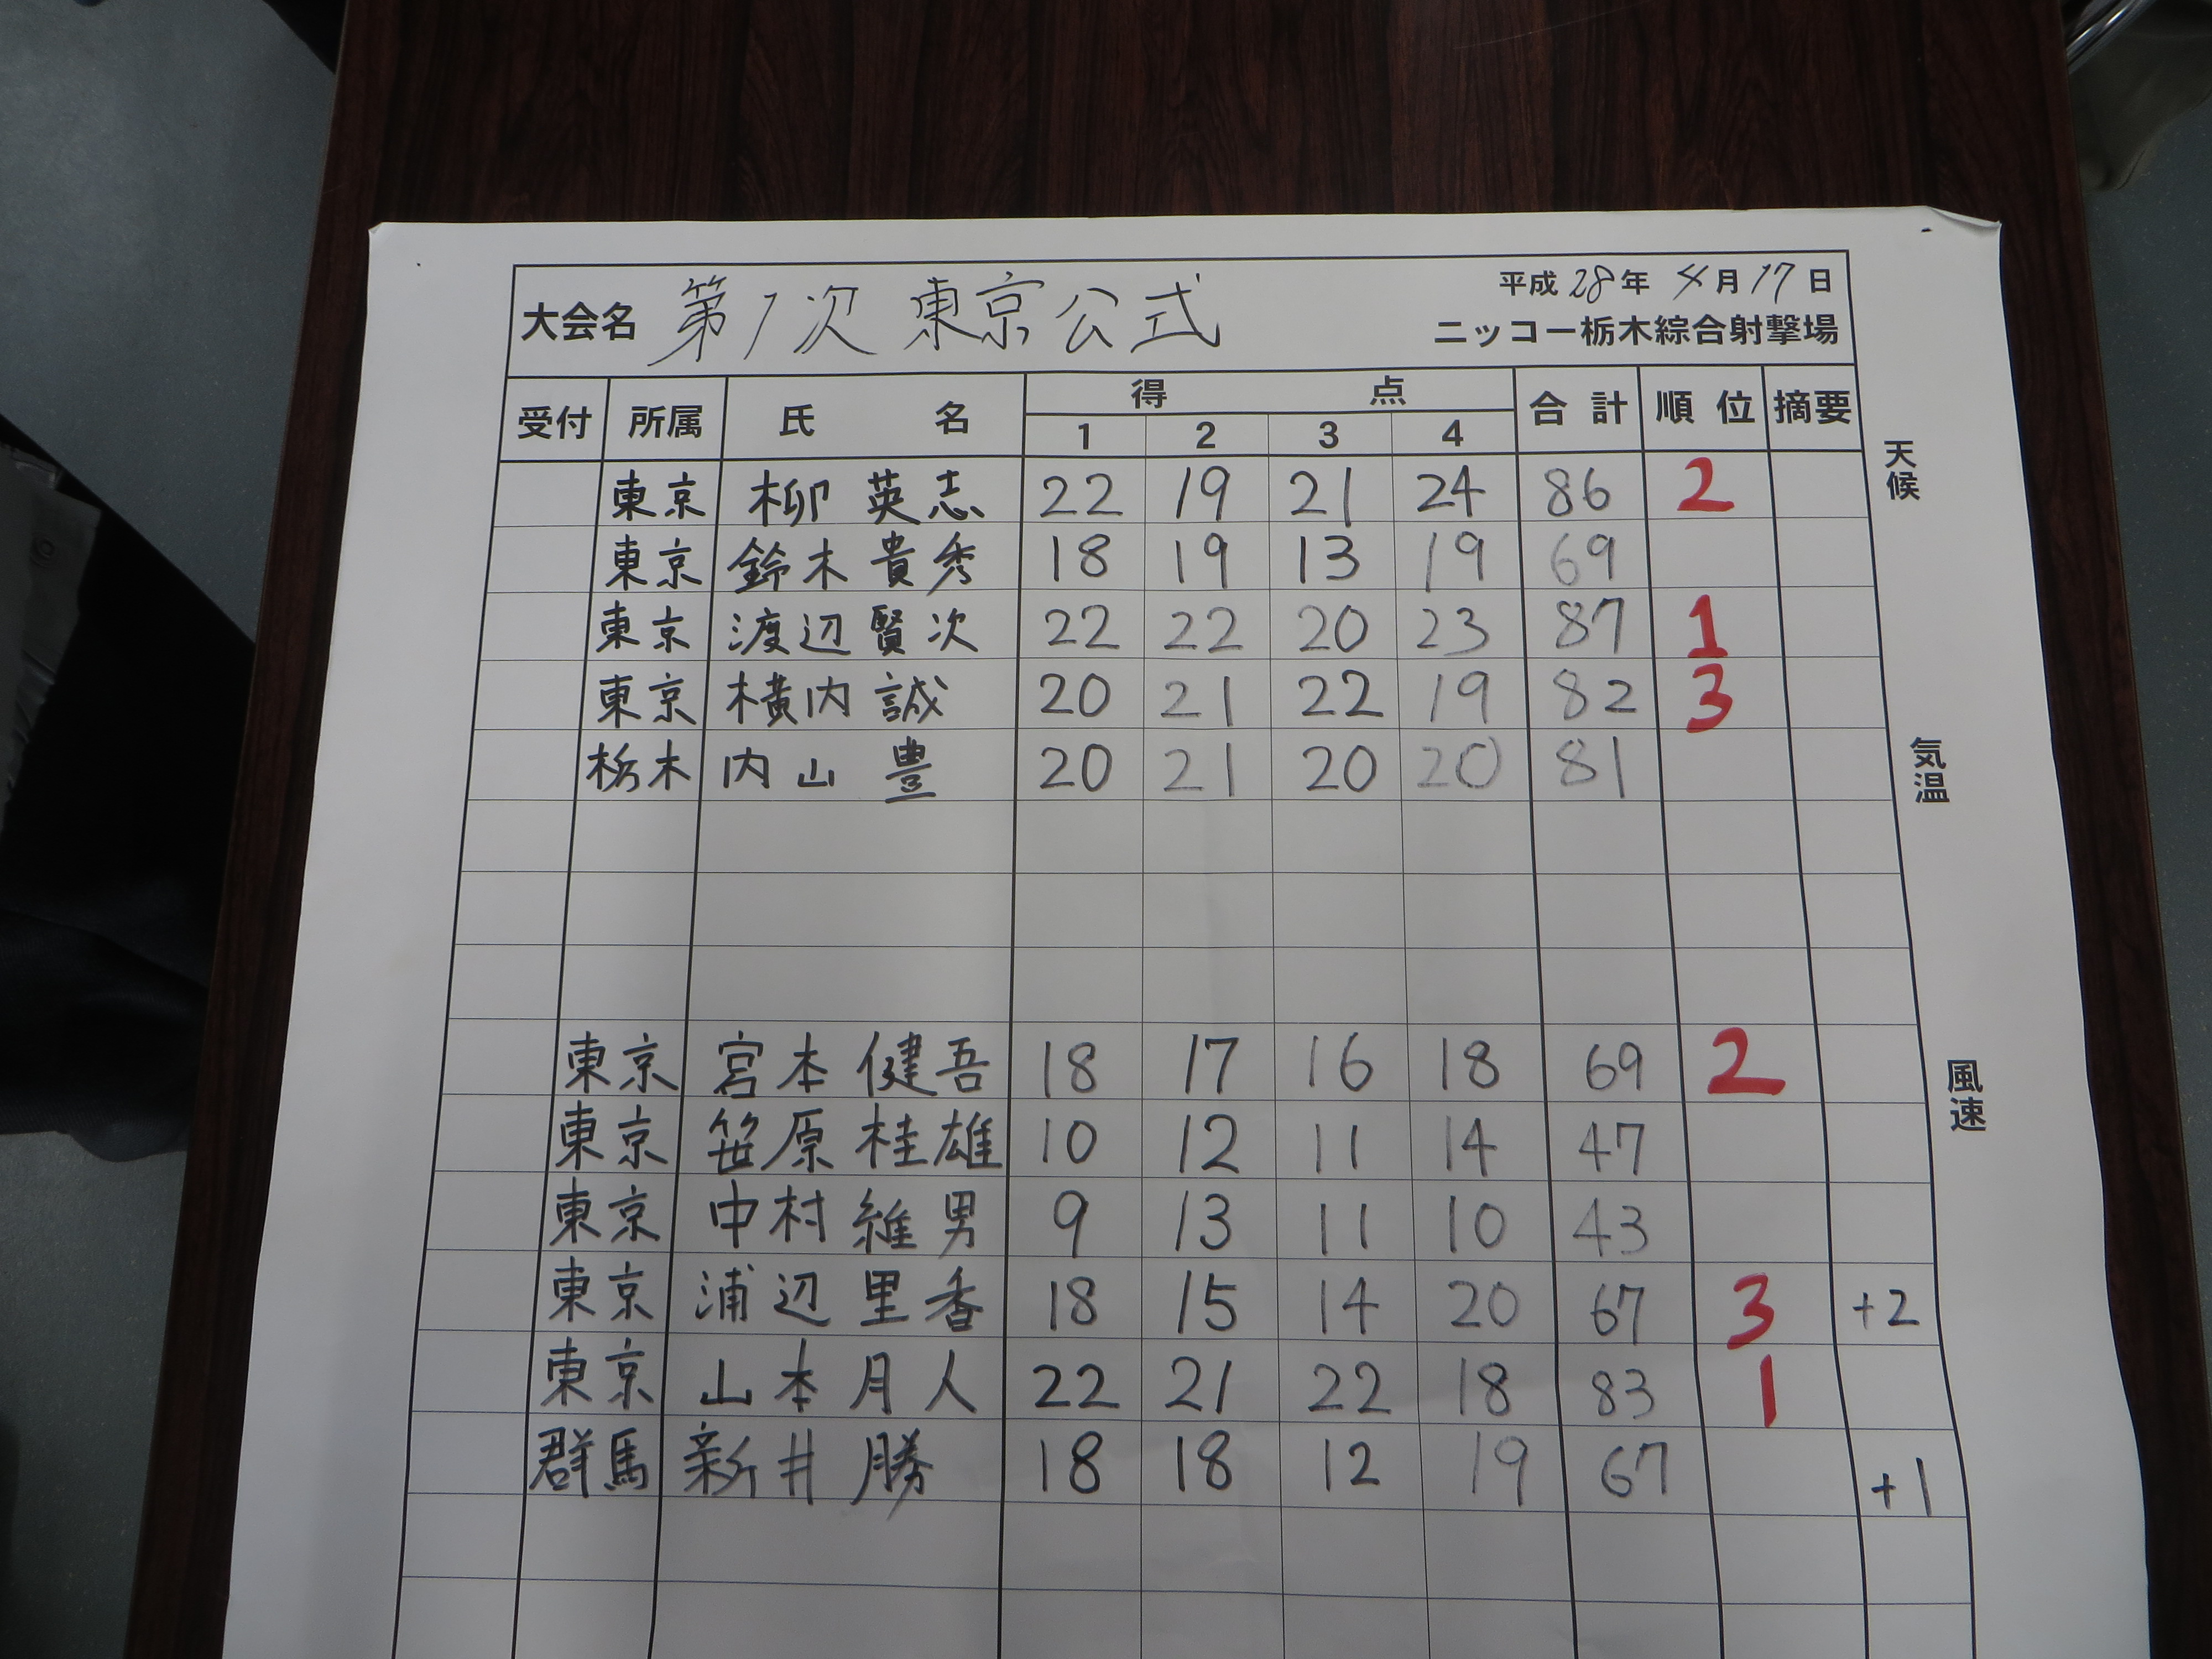 平成 28年 4月 17日
大会名 第1次 東京公式 ニッコー栃木綜合射撃場
受付 所属 氏名 得点 合計 順位 摘要
1 2 3 4
天候
東京 柳 英志 22 19 21 24 86 2
東京 鈴木貴秀 18 19 13 19 69
東京 渡辺賢次 22 22 20 23 87 1
東京 横内誠 20 21 22 19 82 3
気温
栃木 内山豊 20 21 20 20 81
東京 宮本健吾 18 17 16 18 69 2
風速
東京 笹原桂雄 10 12 11 14 47
東京 中村維男 9 13 11 10 43
東京 浦辺里香 18 15 14 20 67 3 +2
東京 山本月人 22 21 22 18 83 1
群馬 新井勝 18 18 12 19 67 +1